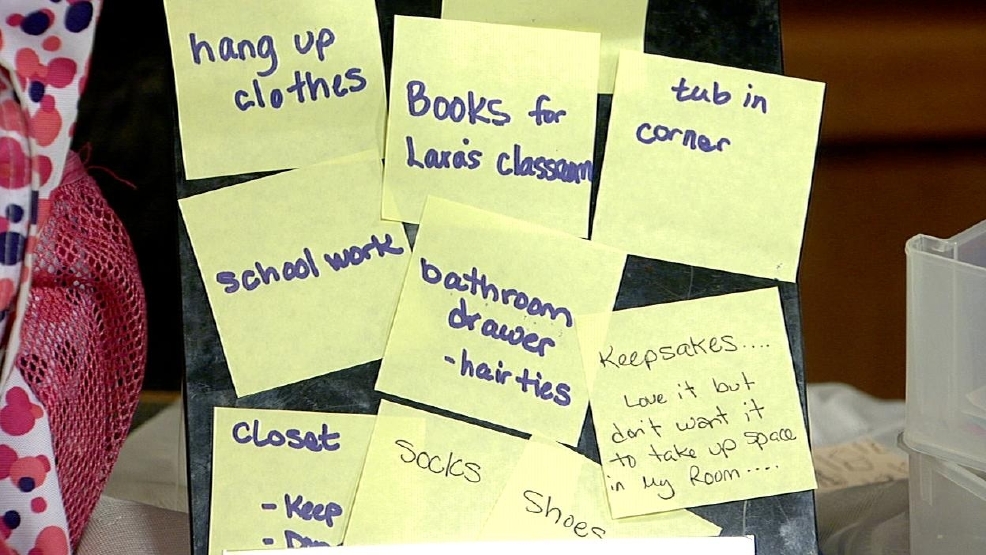 hang up
clothes
Books for
Lara's classroom
tub in
corner
school work
bathroom
drawer
-hair ties
Keepsakes....
Love it but
don't want it
to take up space
in my Room....
Closet
- Keep
Socks
Shoes